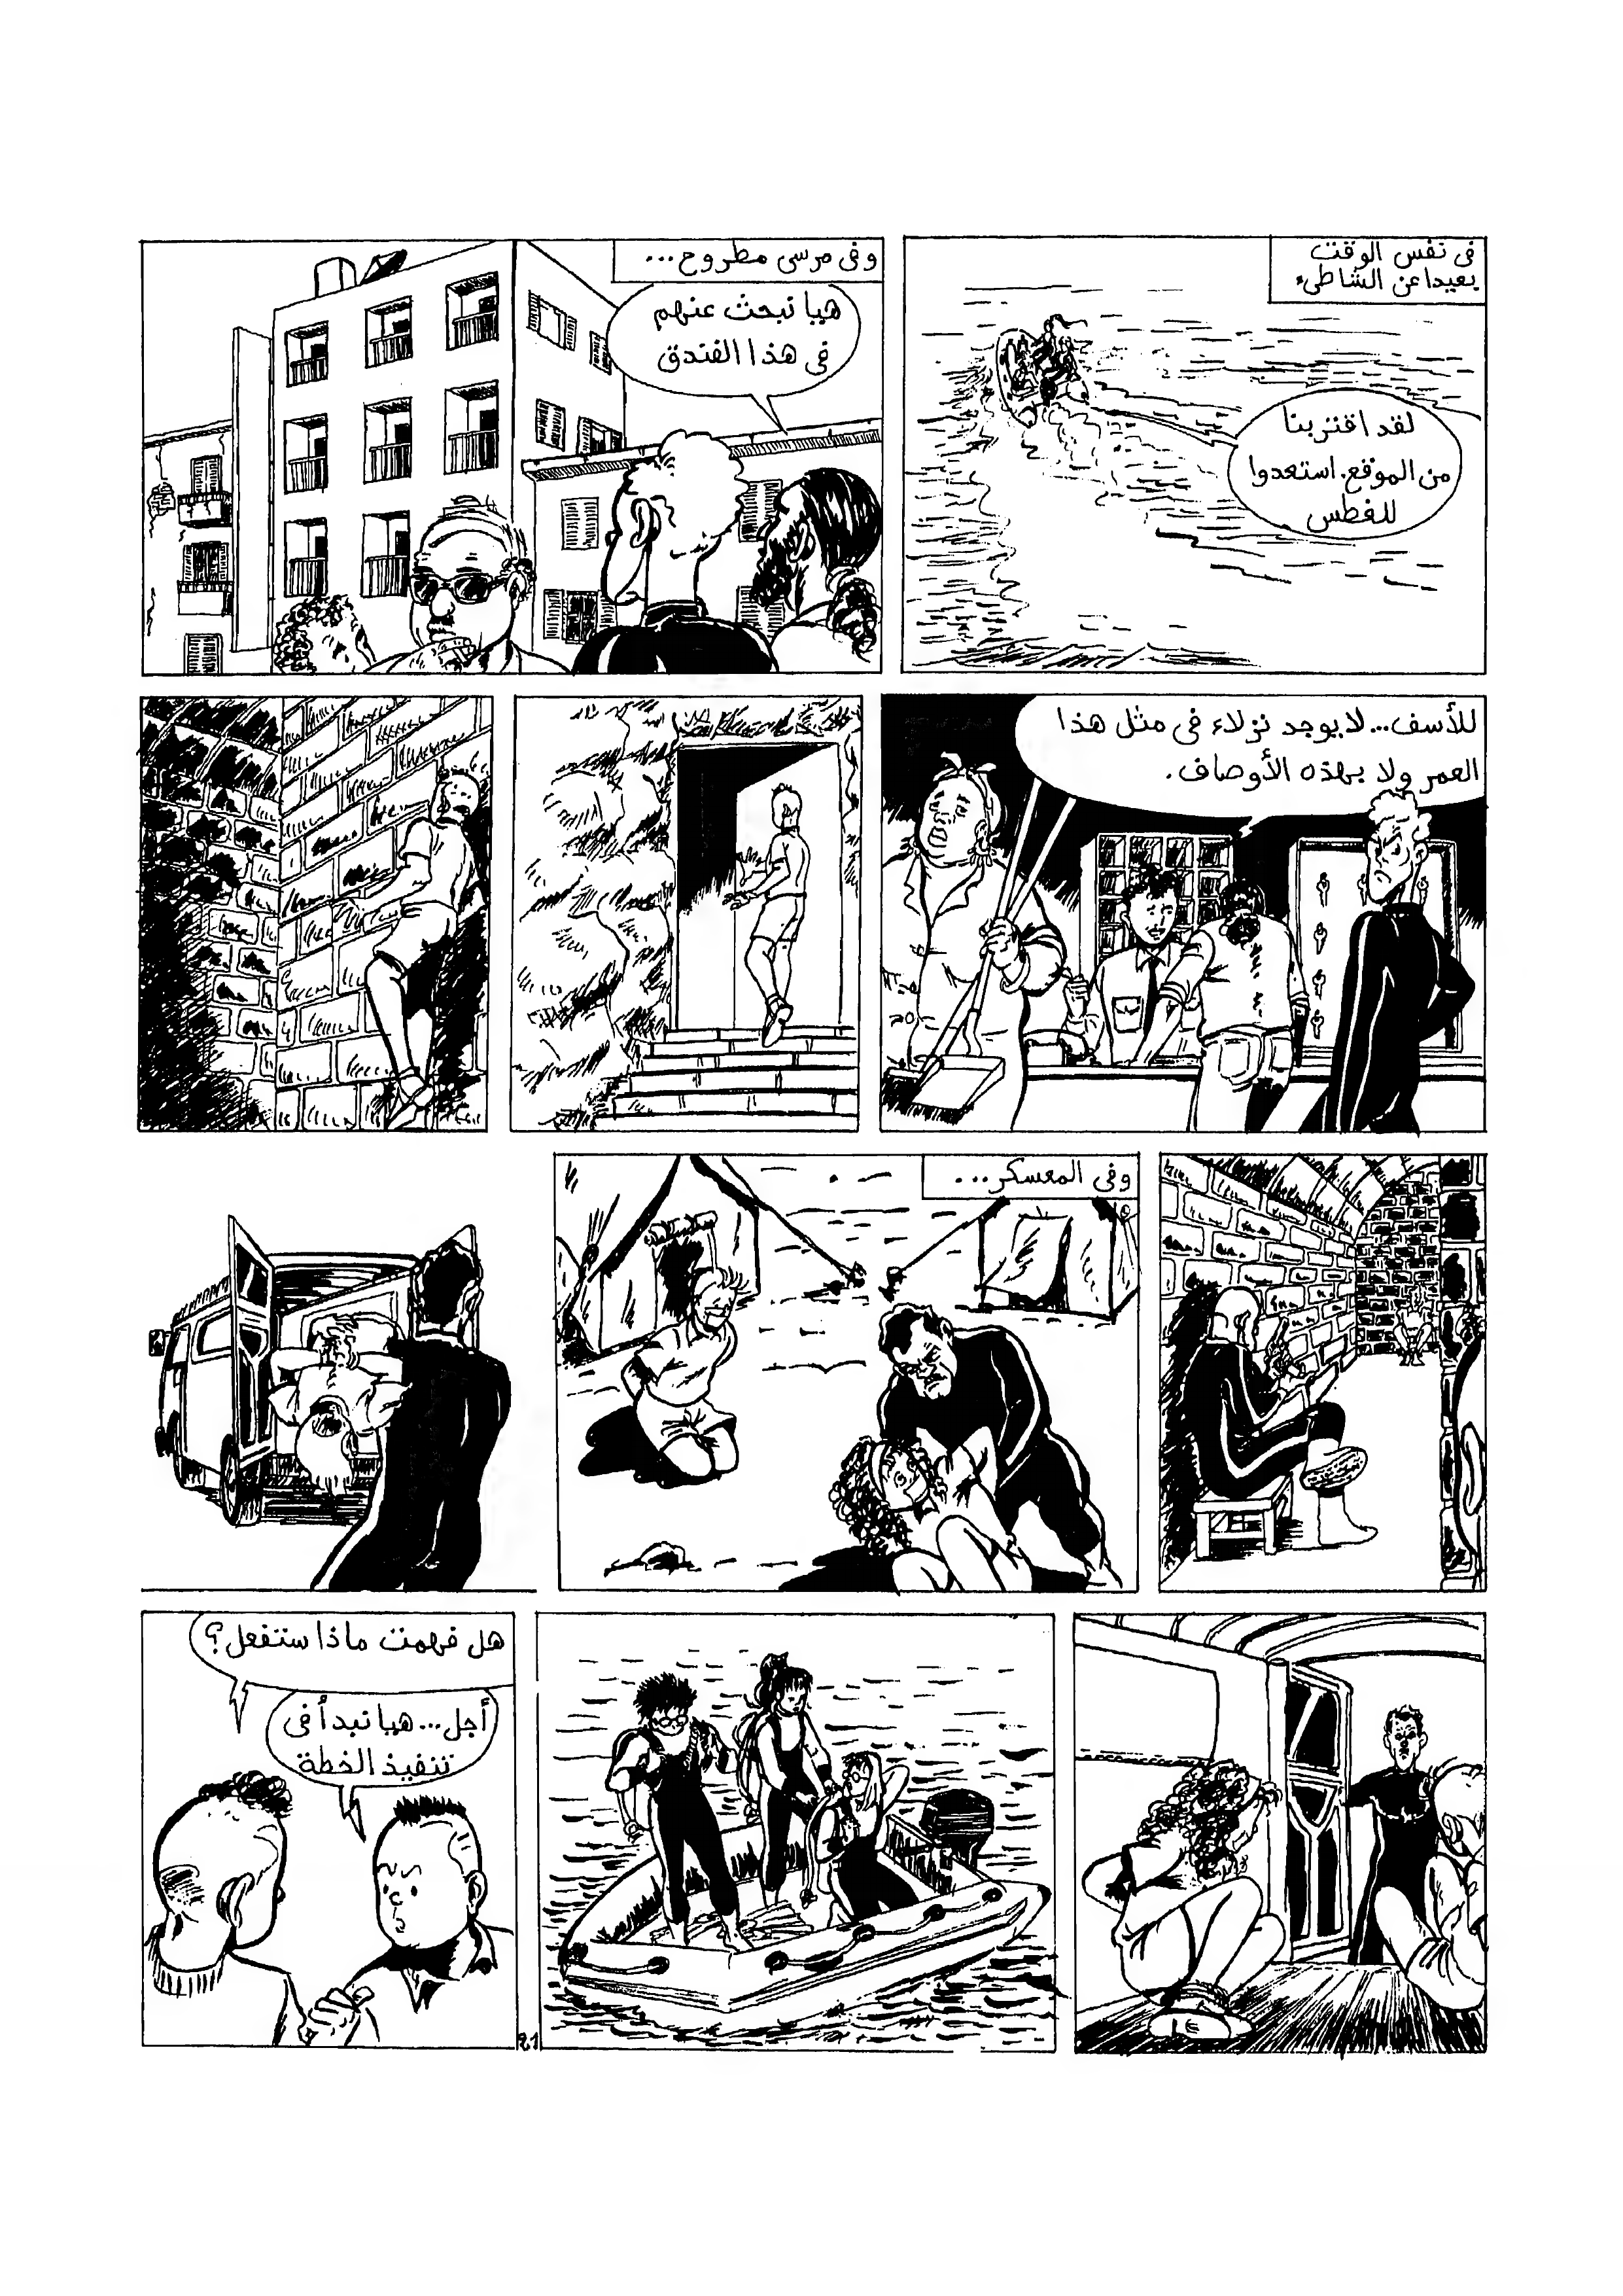 فى نفس الوقت
بعيدا عن الشاطىء
لقد اقتربنا
من الموقع. استعدوا
للغطس
وفى مرسى مطروح...
هيا نبحث عنهم
فى هذا الفندق
للأسف... لا يوجد نزلاء فى مثل هذا
العمر ولا بهذه الأوصاف.
وفى المعسكر...
هل فهمت ماذا ستفعل؟
أجل... هيا نبدأ فى
تنفيذ الخطة
21